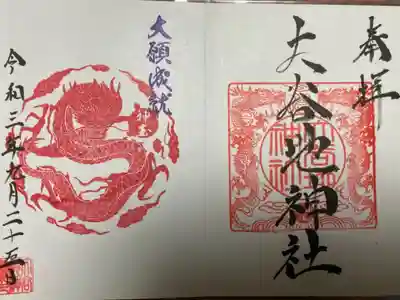 奉拝
大谷地神社
大願成就
令和三年九月二十五日